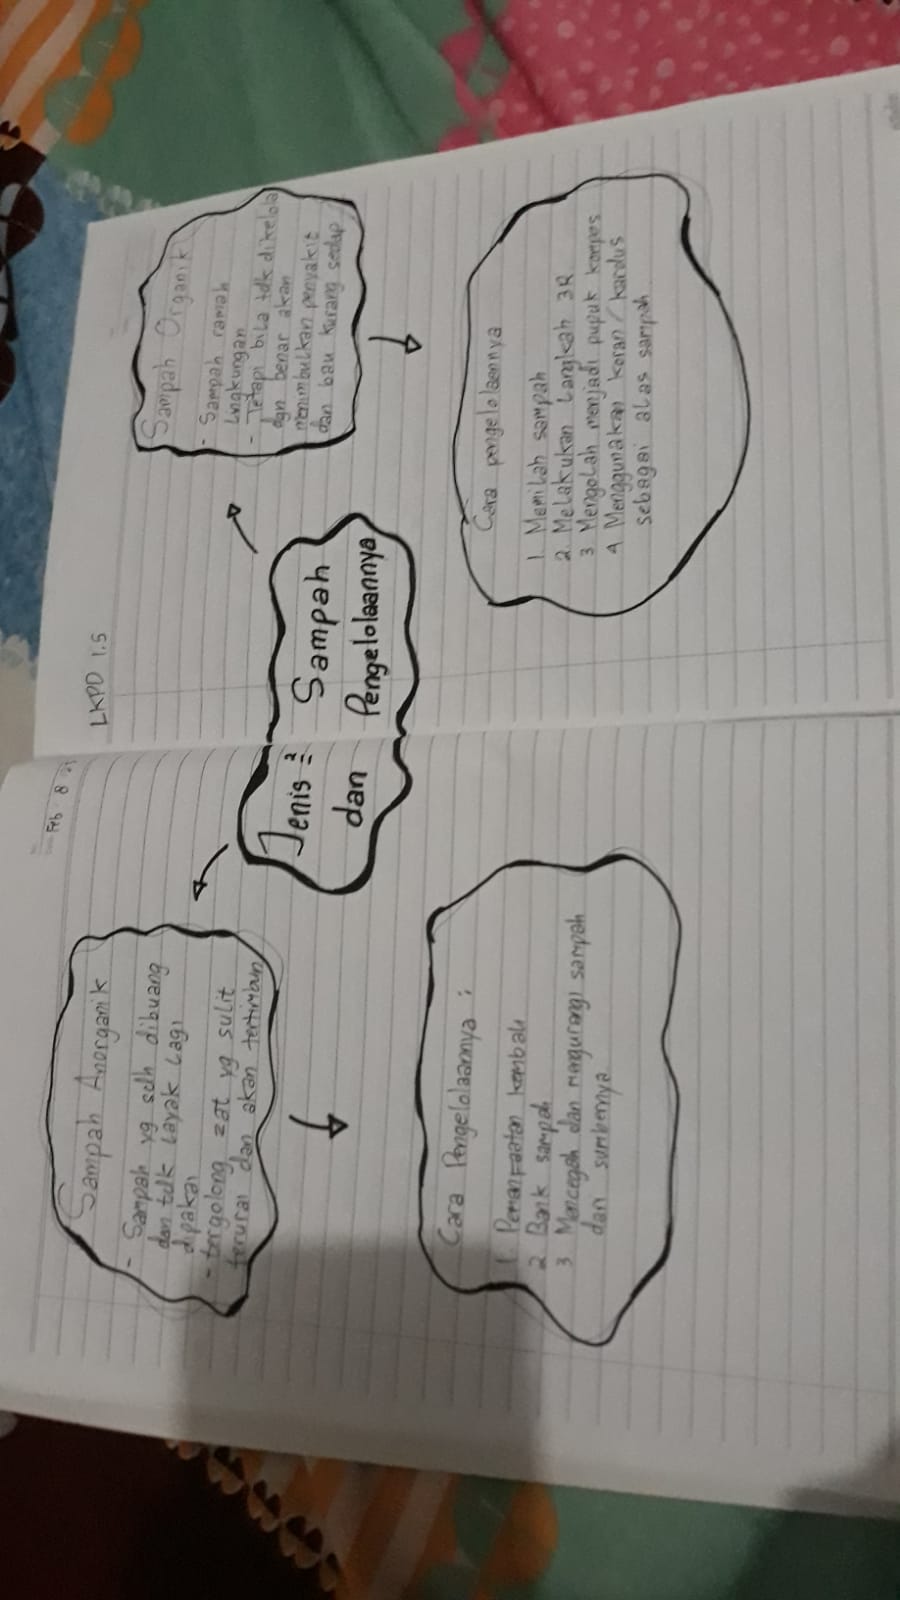 Feb 8
LKPD 1.5
Jenis² Sampah
dan Pengelolaannya
Sampah Anorganik
- Sampah yg sdh dibuang
dan tdk layak lagi
dipakai
- tergolong zat yg sulit
terurai dan akan tertimbun
Cara Pengelolaannya :
1. Pemanfaatan kembali
2 Bank sampah
3 Mencegah dan mengurangi sampah
dari sumbernya
Sampah Organik
- Sampah ramah
lingkungan
- Tetapi bila tdk dikelola
dgn benar akan
menimbulkan penyakit
dan bau kurang sedap
Cara pengelolaennya
1. Memilah sampah
2. Melakukan langkah 3R
3 Mengolah menjadi pupuk kompos
4 Menggunakan koran / kardus
sebagai alas sampah